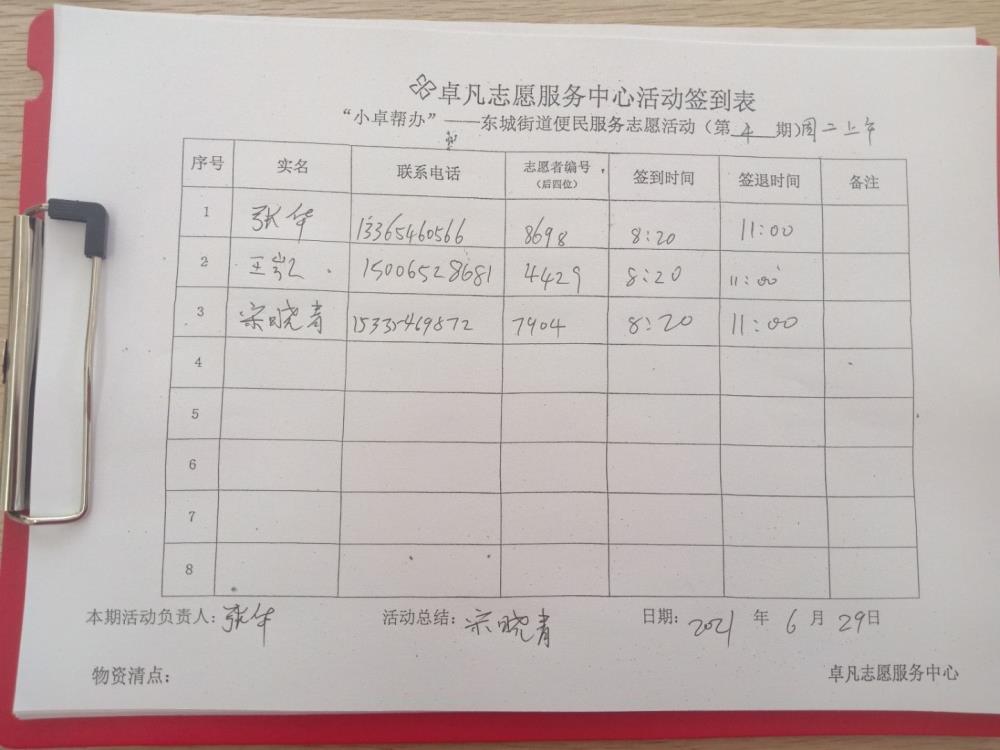 卓凡志愿服务中心活动签到表
“小卓帮办”——东城街道便民服务志愿活动（第 4 期）周二上午
序号 实名 联系电话 志愿者编号（后四位） 签到时间 签退时间 备注
1 张华 13365460566 8698 8:20 11:00
2 王 15006528681 4429 8:20 11:00
3 宋晓青 15335469872 7904 8:20 11:00
4
5
6
7
8
本期活动负责人：张华 活动总结：宋晓青 日期：2021 年 6 月 29日
物资清点： 卓凡志愿服务中心